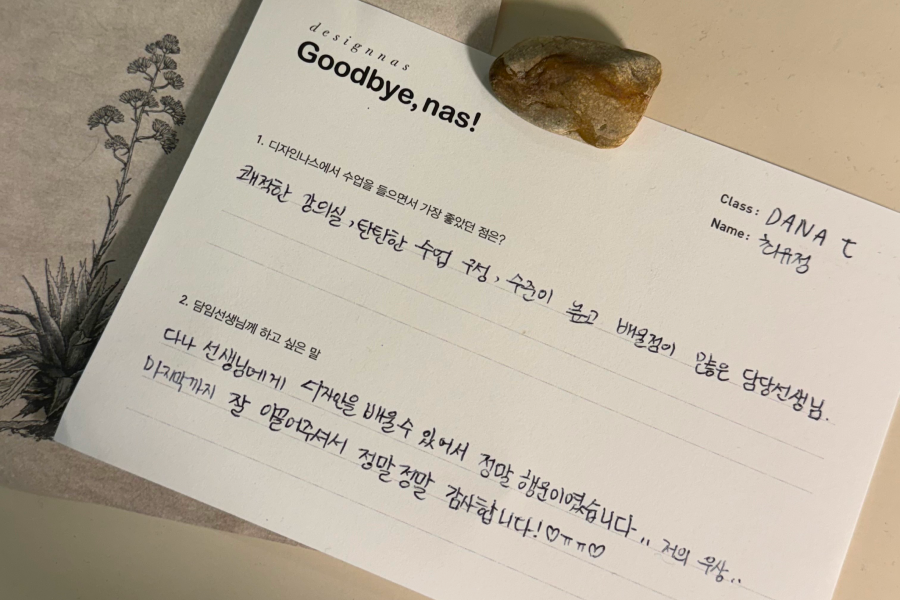 designnas
Goodbye, nas!
Class: DANA t
Name: 최유정
1. 디자인나스에서 수업을 들으면서 가장 좋았던 점은?
쾌적한 강의실, 탄탄한 수업 구성, 수준이 높고 배울점이 많은 담당선생님.
2. 담임선생님께 하고 싶은 말
다나 선생님에게 디자인을 배울수 있어서 정말 행운이였습니다.. 저의 우상..
마지막까지 잘 이끌어주셔서 정말정말 감사합니다!♡ㅠㅠ♡